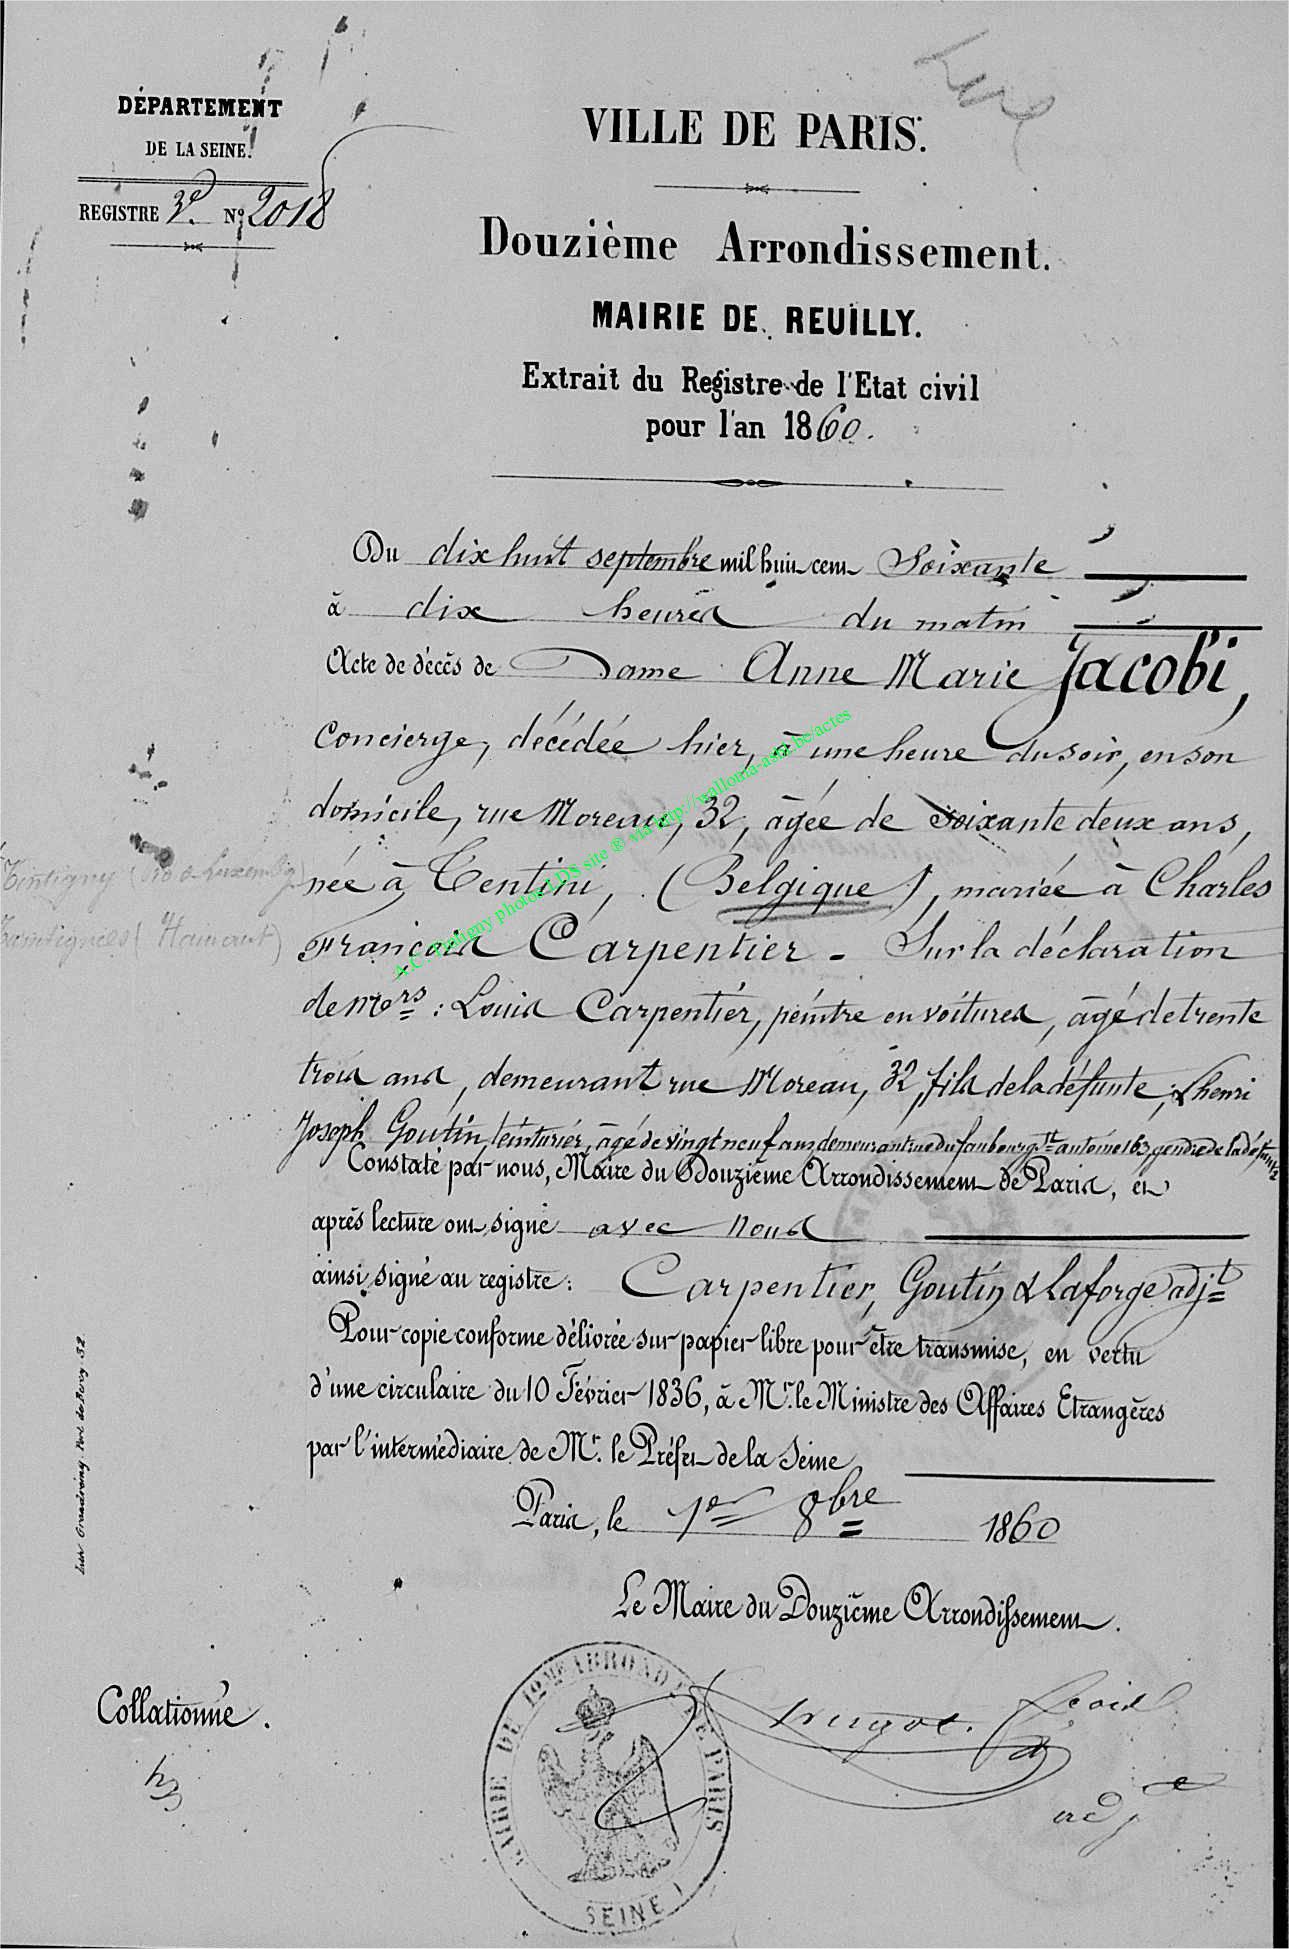 Luxe
DÉPARTEMENT
DE LA SEINE.
REGISTRE 3e. No 2018
VILLE DE PARIS.
Douzième Arrondissement.
MAIRIE DE REUILLY.
Extrait du Registre de l'Etat civil
pour l'an 1860.
Du dix huit septembre mil huit cent Soixante
à dix heures du matin
Acte de décès de Dame Anne Marie Jacobi,
concierge, décédée hier, à une heure du soir, en son
domicile, rue Moreau, 32, âgée de soixante deux ans,
née à Tentini, (Belgique), mariée à Charles
François Carpentier - Sur la déclaration
de Mrs : Louis Carpentier, peintre en voitures, âgé de trente
trois ans, demeurant rue Moreau, 32, fils de la défunte, & henri
Joseph Goutin, teinturier, âgé de vingt neuf ans, demeurant rue du faubourg St antoine 163, gendre de la défunte
Constaté par nous, Maire du Douzième Arrondissement de Paris, et
après lecture ont signé avec nous
ainsi signé au registre : Carpentier, Goutin & Laforge adjt
Pour copie conforme délivrée sur papier libre pour être transmise, en vertu
d'une circulaire du 10 Février 1836, à Mr. le Ministre des Affaires Etrangères
par l'intermédiaire de Mr. le Préfet de la Seine
Paris, le 1er 8bre 1860
Le Maire du Douzième Arrondissement.
Tintigny (
Taintignies (Hainaut)
A.C. Tintigny photos LDS site ® via http://wallonia-asbl.be/actes
Collationné.
MAIRIE DU 12me ARRONDt DE PARIS
SEINE
adj